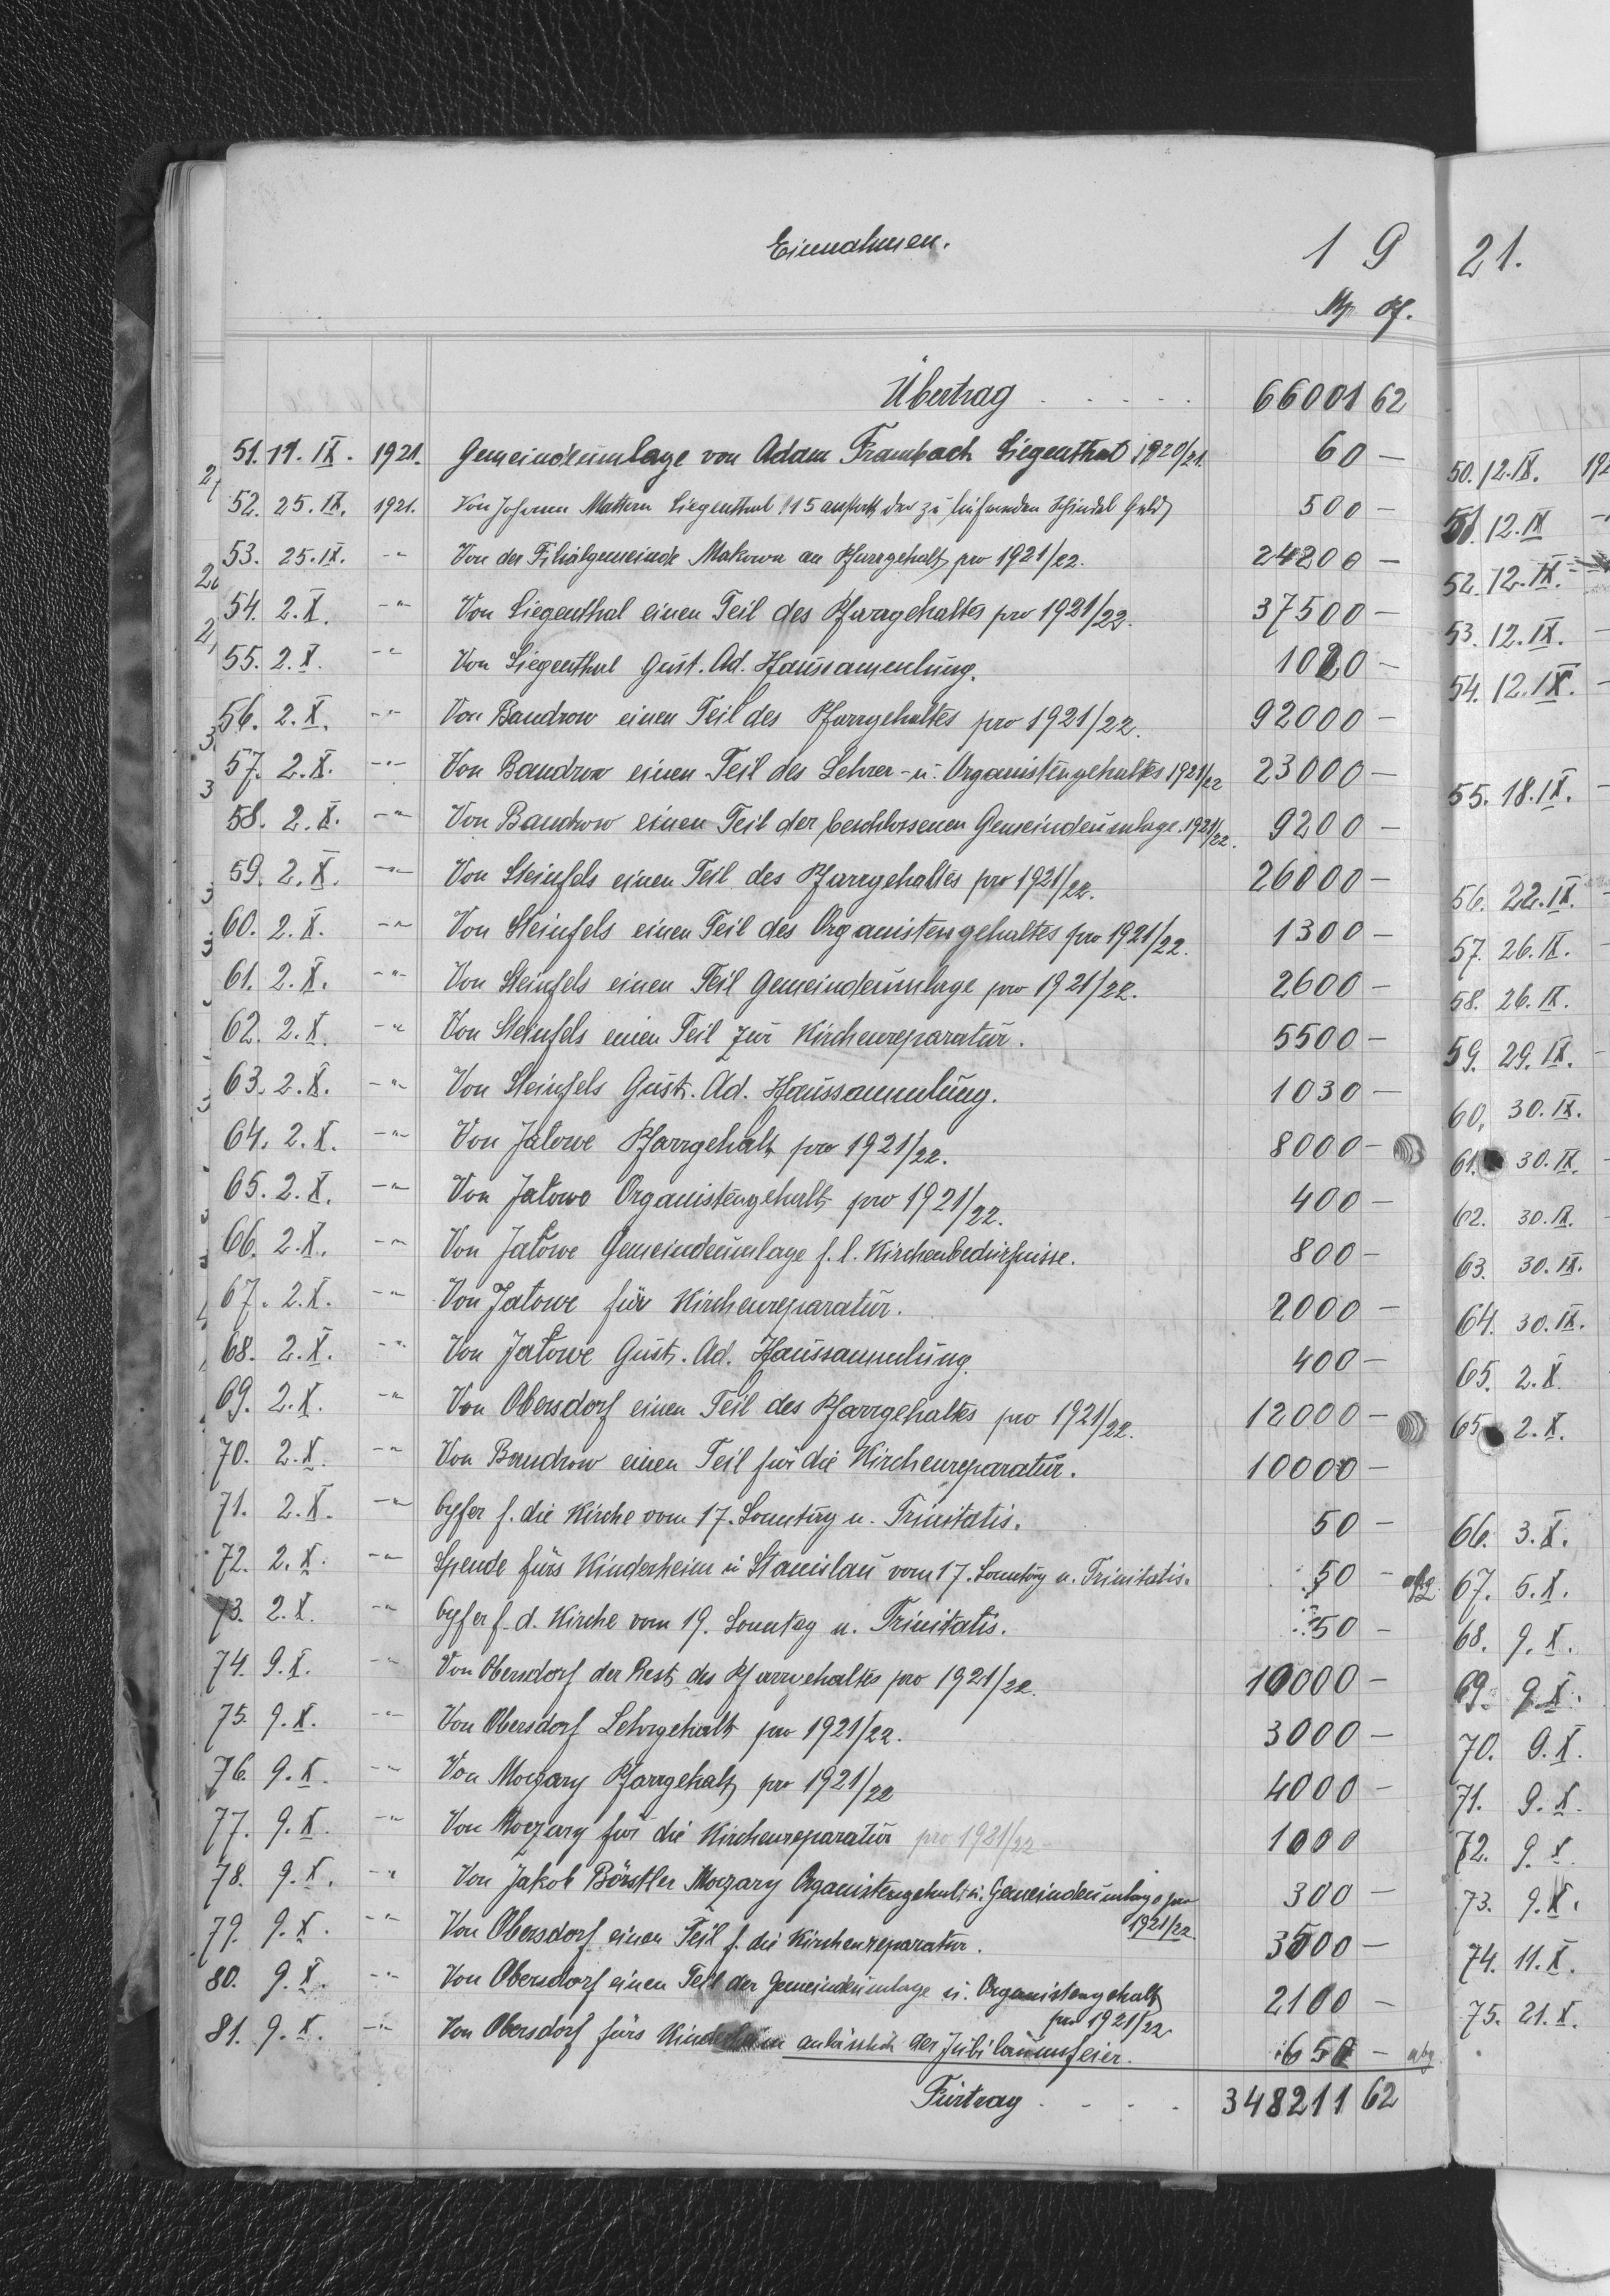 Einnahmen. 1 9
Mp Pf.
Übertrag . . . . . 66001 62
51. 11. IX. 1921. Gemeindeumlage von Adam Frambach Siegenthal 1920/21. 60 —
52. 25. IX. 1921. Von Johann Mattern Siegenthal anstatt der zu Schindel Geld 500 —
53. 25. IX. -"- Von der Filialgemeinde Makowa an Pfarrgehalt pro 1921/22. 24200 —
54. 2. X. -"- Von Siegenthal einen Teil des Pfarrgehaltes pro 1921/22. 37500 —
55. 2. X. -"- Von Siegenthal Gust. Ad. Haussammlung. 1020 —
56. 2. X. -"- Von Bandrow einen Teil des Pfarrgehaltes pro 1921/22. 92000 —
57. 2. X. -"- Von Bandrow einen Teil des Lehrer- u. Organistengehaltes 1921/22 23000 —
58. 2. X. -"- Von Bandrow einen Teil der beschlossenen Gemeindeumlage. 1921/22. 9200 —
59. 2. X. -"- Von Steinfels einen Teil des Pfarrgehaltes pro 1921/22. 26000 —
60. 2. X. -"- Von Steinfels einen Teil des Organistengehaltes pro 1921/22. 1300 —
61. 2. X. -"- Von Steinfels einen Teil Gemeindeumlage pro 1921/22. 2600 —
62. 2. X. -"- Von Steinfels einen Teil zur Kirchenreparatur. 5500 —
63. 2. X. -"- Von Steinfels Gust. Ad. Haussammlung. 1030 —
64. 2. X. -"- Von Jalowe Pfarrgehalt pro 1921/22. 8000 —
65. 2. X. -"- Von Jałowe Organistengehalt pro 1921/22. 400 —
66. 2. X. -"- Von Jałowe Gemeindeumlage f. l. Kirchenbedürfnisse. 800 —
67. 2. X. -"- Von Jałowe für Kirchenreparatur. 2000 —
68. 2. X. -"- Von Jałowe Gust. Ad. Haussammlung. 400 —
69. 2. X. -"- Von Obersdorf einen Teil des Pfarrgehaltes pro 1921/22. 12000 —
70. 2. X. -"- Von Bandrow einen Teil für die Kirchenreparatur. 10000 —
71. 2. X. -"- Opfer f. die Kirche vom 17. Sonntag n. Trinitatis. 50 —
72. 2. X. -"- Spende fürs Kinderheim in Stanislau vom 17. Sonntag n. Trinitatis. 50 — abg
73. 2. X. -"- Opfer f. d. Kirche vom 19. Sonntag n. Trinitatis. 50 —
74. 9. X. -"- Von Obersdorf der Rest des Pfarrgehaltes pro 1921/22. 10000 —
75. 9. X. -"- Von Obersdorf Lehrgehalt pro 1921/22. 3000 —
76. 9. X. -"- Von Moczary Pfarrgehalt pro 1921/22 4000 —
77. 9. X. -"- Von Moczary für die Kirchenreparatur pro 1921/22 1000
78. 9. X. -"- Von Jakob Börstler Moczary Organistengehalt u. Gemeindeumlage pro 300 —
1921/22.
79. 9. X. -"- Von Obersdorf einen Teil f. die Kirchenreparatur. 3500 —
80. 9. X. -"- Von Obersdorf einen Teil der Gemeindeumlage u. Organistengehalt 2100 —
pro 1921/22.
81. 9. X. -"- Von Obersdorf fürs Kinderheim anlässlich der Jubiläumsfeier. 650 — abg
Fürtrag . . . . 348211 62
21.
50. 12. IX. 192
51. 12. IX
52. 12. IX.
53. 12. IX.
54. 12. IX.
55. 18. IX.
56. 22. IX.
57. 26. IX.
58. 26. IX.
59. 29. IX.
60, 30. IX.
61. 30. IX.
62. 30. IX.
63. 30. IX.
64. 30. IX.
65. 2. X.
65 2. X.
66. 3. X.
67. 5. X.
68. 9. X.
69. 9. X.
70. 9. X.
71. 9. X.
72. 9. X.
73. 9. X.
74. 11. X.
75. 21. X.